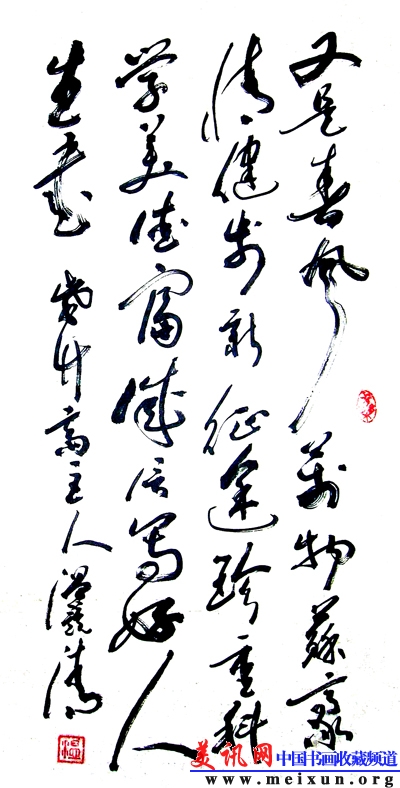 又是春風萬物蘇豪
情健步新征途珍重科
学美德富誠信写好人
生 竹斋主人温
美讯网 中国书画收藏频道
www.meixun.org